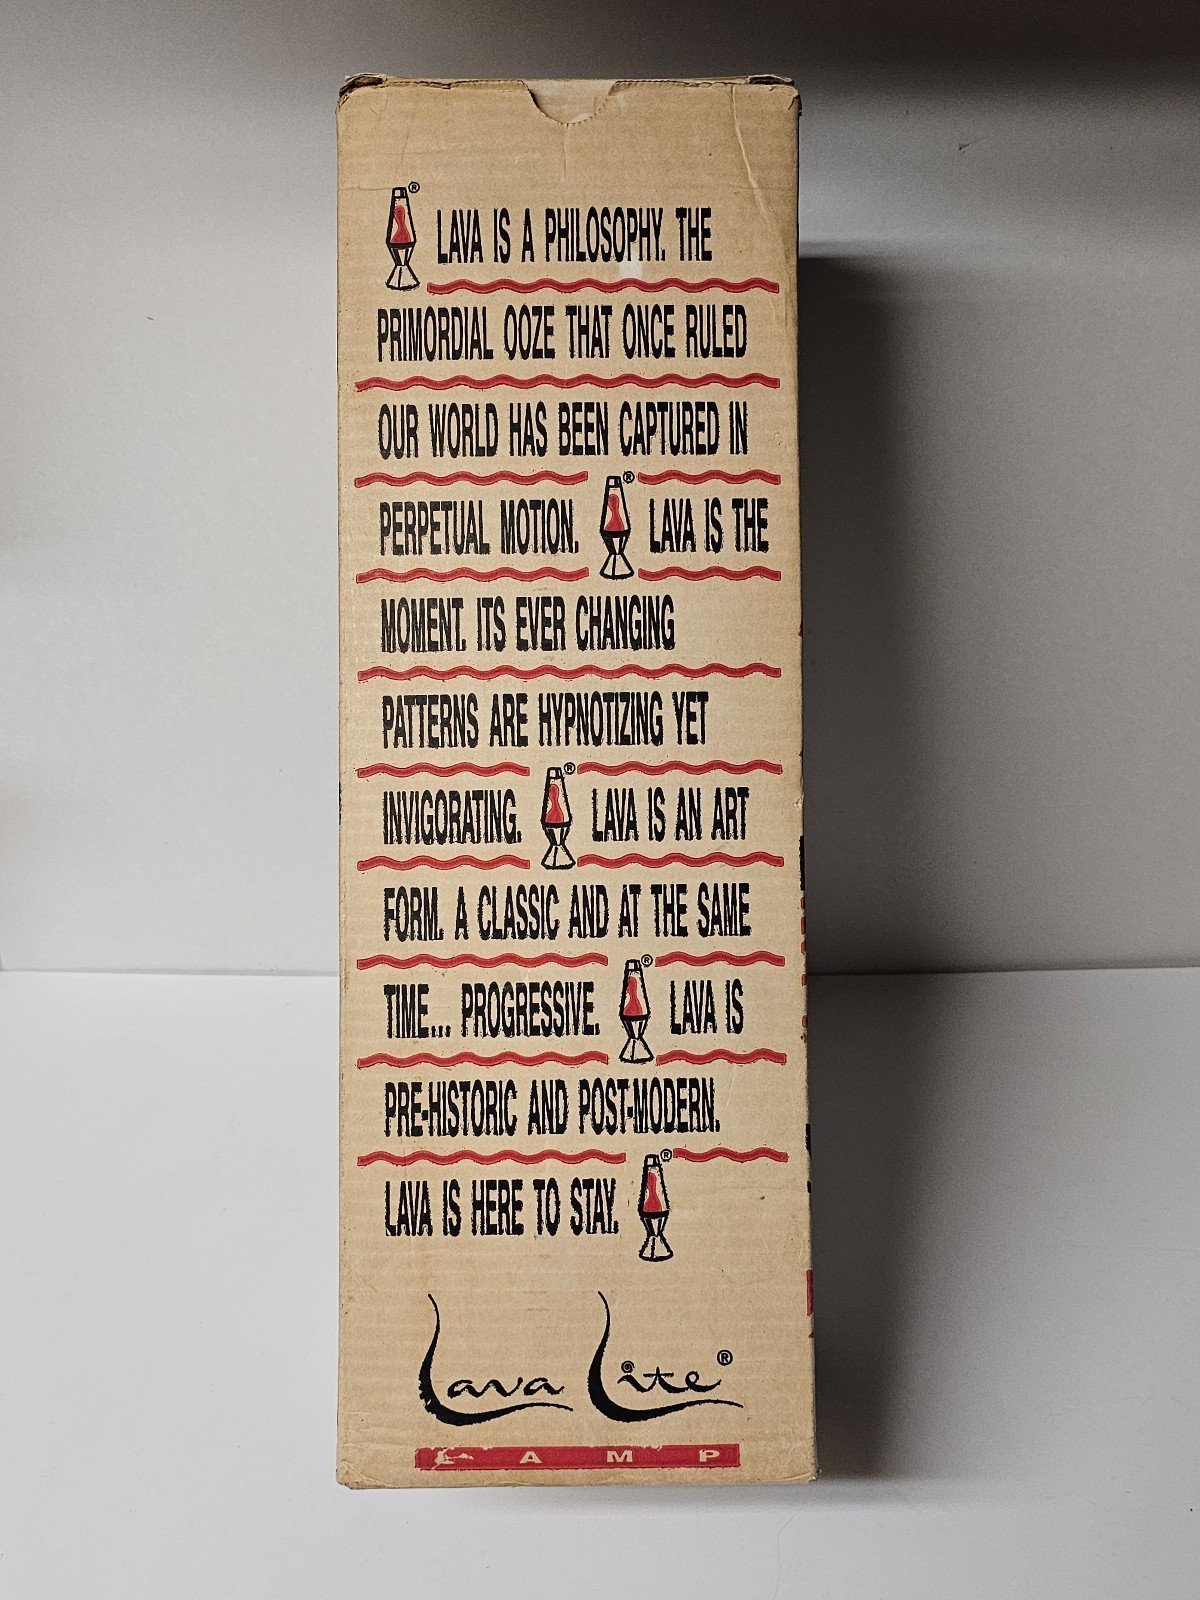 ® LAVA IS A PHILOSOPHY. THE
PRIMORDIAL OOZE THAT ONCE RULED
OUR WORLD HAS BEEN CAPTURED IN
PERPETUAL MOTION. ® LAVA IS THE
MOMENT. ITS EVER CHANGING
PATTERNS ARE HYPNOTIZING YET
INVIGORATING. ® LAVA IS AN ART
FORM. A CLASSIC AND AT THE SAME
TIME... PROGRESSIVE. ® LAVA IS
PRE-HISTORIC AND POST-MODERN.
LAVA IS HERE TO STAY. ®
Lava Lite®
LAMP